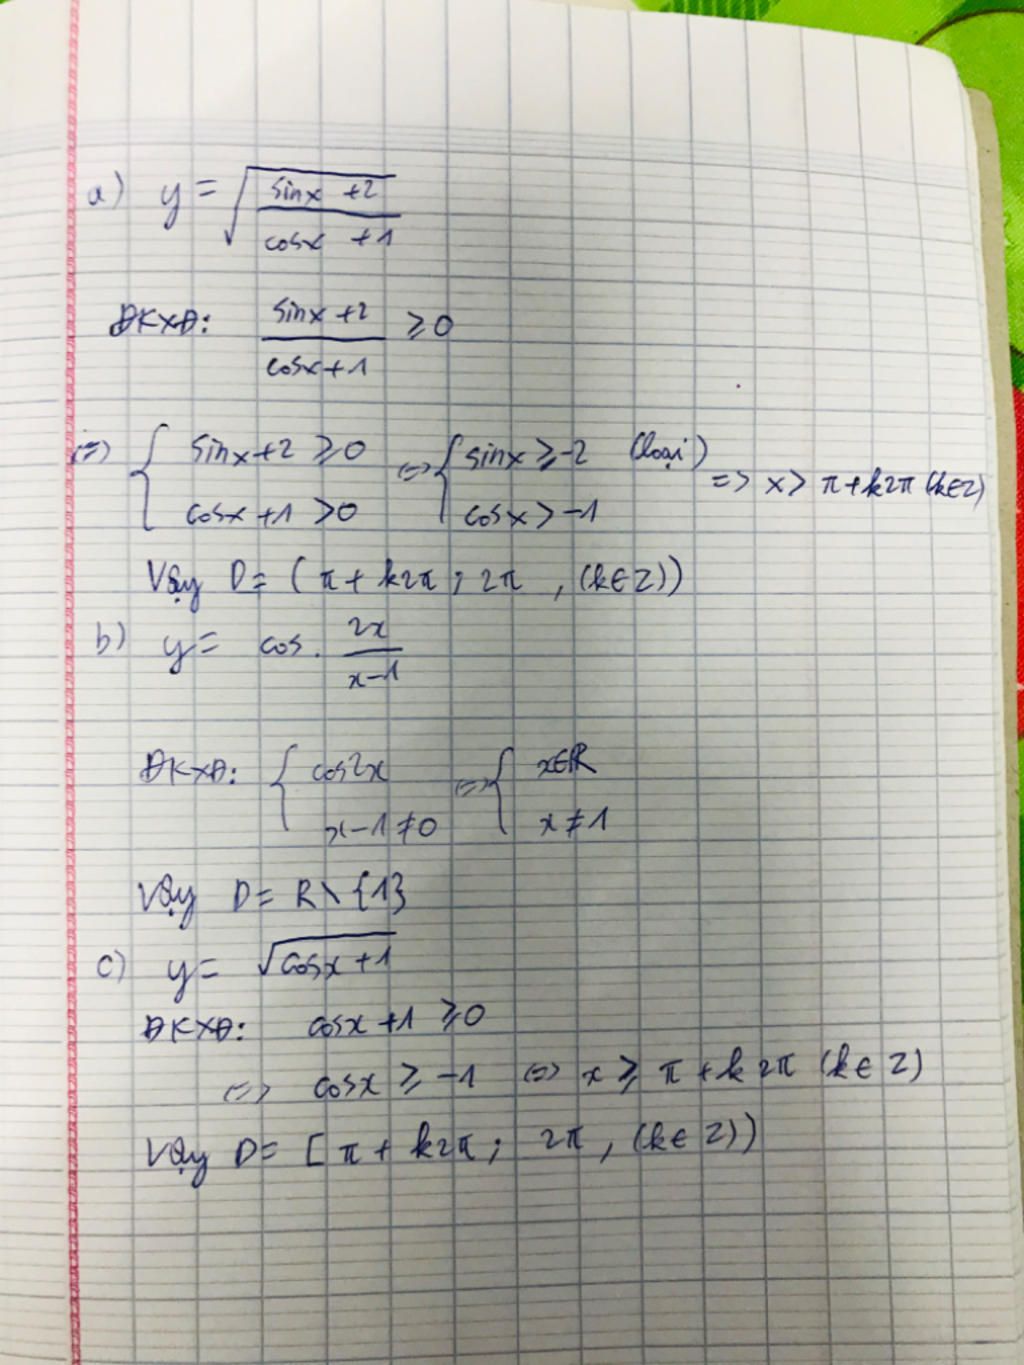 a) y = √((sinx + 2)/(cosx + 1))
ĐKXĐ: (sinx + 2)/(cosx + 1) ≥ 0
(=) { sinx + 2 ≥ 0 (=) { sinx ≥ -2 (loại) => x > π + k2π (k∈Z)
{ cosx + 1 > 0 { cosx > -1
Vậy D = (π + k2π ; 2π , (k∈Z))
b) y = cos. 2x/(x-1)
ĐKXĐ: { cos2x (=) { x∈R
{ x - 1 ≠ 0 { x ≠ 1
Vậy D = R \ {1}
c) y = √(cosx + 1)
ĐKXĐ: cosx + 1 ≥ 0
(=) cosx ≥ -1 (=) x ≥ π + k2π (k∈Z)
Vậy D = [π + k2π ; 2π , (k∈Z))